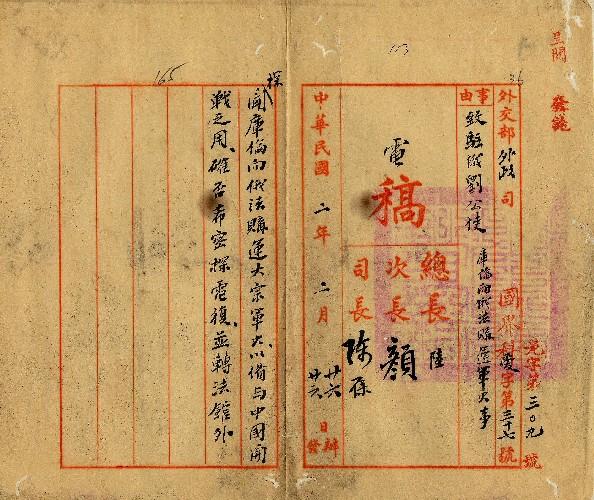 呈閱
發訖
36
103
165
外交部外政司
國界科發字第三十七號
光字第三〇九號
事由
致駐俄劉公使
庫倫向俄法購運軍火事
電
稿
總長 陸
次長 顏
司長 陳
中華民國二年二月廿六日辦
廿六 發
探
聞庫倫向俄法購運大宗軍火以備與中國開
戰之用、確否希密探電復、並轉法館外